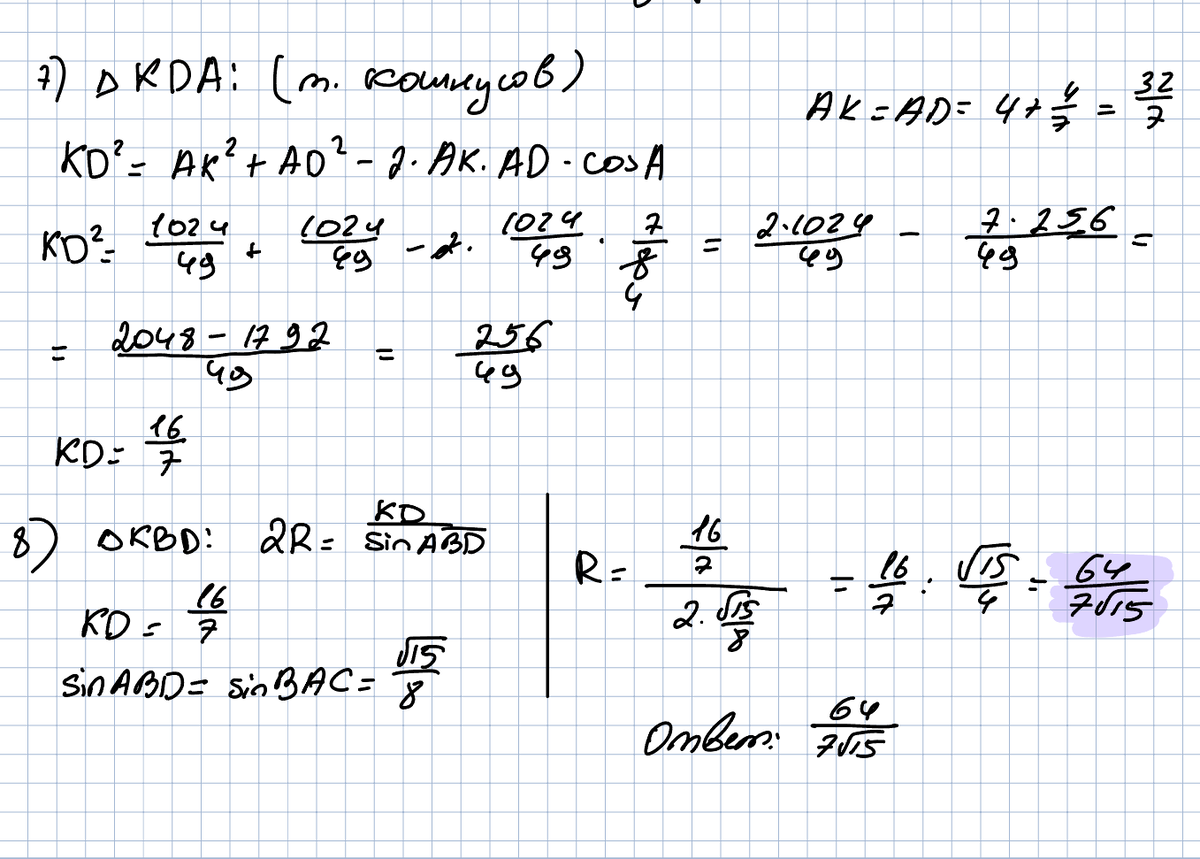 7) △KDA: (т. косинусов)
AK = AD = 4 + 4/7 = 32/7
KD² = AK² + AD² - 2 · AK · AD · cos A
KD² = 1024/49 + 1024/49 - 2 · 1024/49 · 7/8 4 = 2·1024/49 - 7·256/49 =
= 2048 - 1792/49 = 256/49
KD = 16/7
8) △KBD: 2R = KD/sin ABD
KD = 16/7
sin ABD = sin BAC = √15/8
R = 16/7/2 · √15/8 = 16/7 : √15/4 = 64/7√15
Ответ: 64/7√15